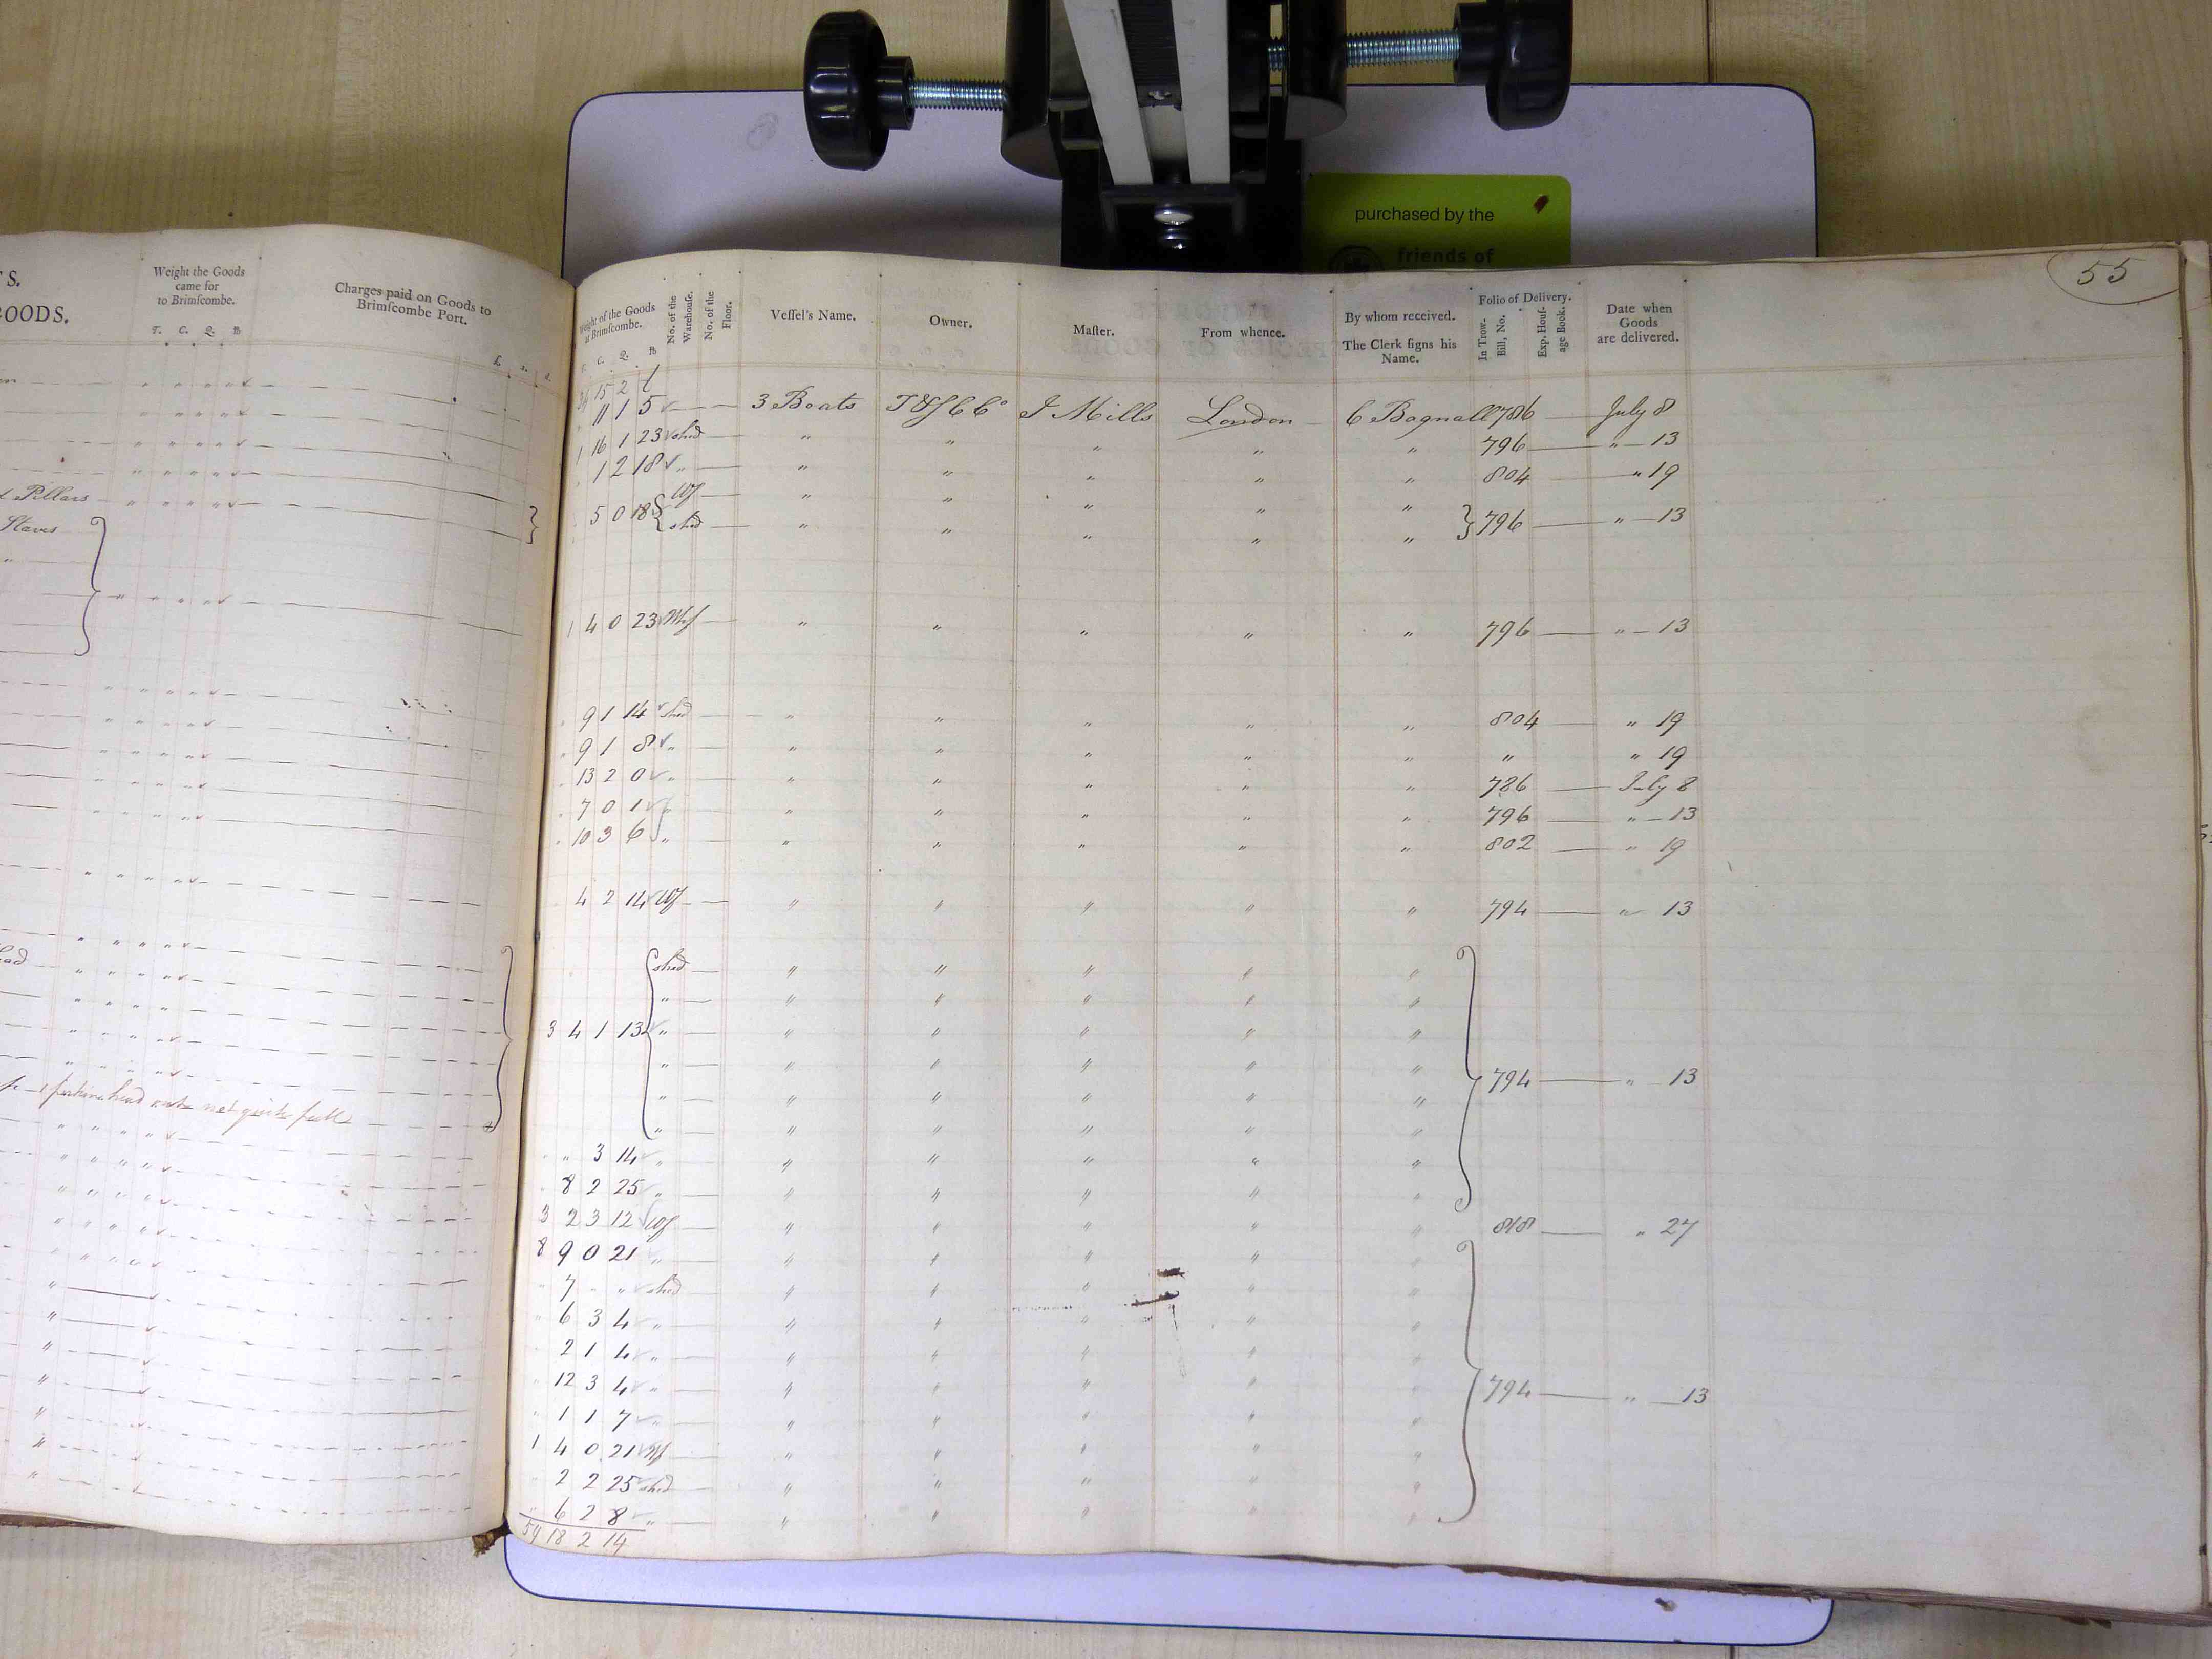 purchased by the
friends of
55
S.
GOODS.
Weight the Goods
came for
to Brimſcombe.
T. C. Q. lb
Charges paid on Goods to
Brimſcombe Port.
£. s. d.
& Pillars
Staves
"
not quite full
Weight of the Goods
at Brimſcombe.
C. Q. lb
No. of the
Warehouſe.
No. of the
Floor.
Veſſel's Name.
Owner.
Maſter.
From whence.
By whom received.
The Clerk ſigns his
Name.
Folio of Delivery.
In Trow-
Bill, No.
Exp. Houſ-
age Book.
Date when
Goods
are delivered.
15 2
11 1 5 3 Boats T & J C Co J Mills London C Bagnall 786 July 8
1 16 1 23 shed " " " " " 796 " 13
1 2 18 " " " " " " 804 " 19
Wf " " " " "
5 0 18 796 " 13
shed " " " " "
1 4 0 23 Whf " " " " " 796 " 13
9 1 14 shed " " " " " 804 " 19
9 1 8 " " " " " " " " 19
13 2 0 " " " " " " 786 July 8
7 0 1 " " " " " " 796 " 13
10 3 6 " " " " " " 802 " 19
4 2 14 Wf " " " " " 794 " 13
shed " " " " "
" " " " " "
3 4 1 13 " " " " " "
" " " " " " 794 " 13
" " " " " "
" " " " " "
" " 3 14 " " " " " "
" 8 2 25 " " " " " "
3 2 3 12 Wf " " " " " 818 " 27
8 9 0 21 " " " " " "
" 7 " " shed " " " " "
" 6 3 4 " " " " " "
" 2 1 4 " " " " " "
" 12 3 4 " " " " " " 794 " 13
" 1 1 7 " " " " " "
1 4 0 21 Wf " " " " "
" 2 2 25 shed " " " " "
" 6 2 8 " " " " " "
18 2 14